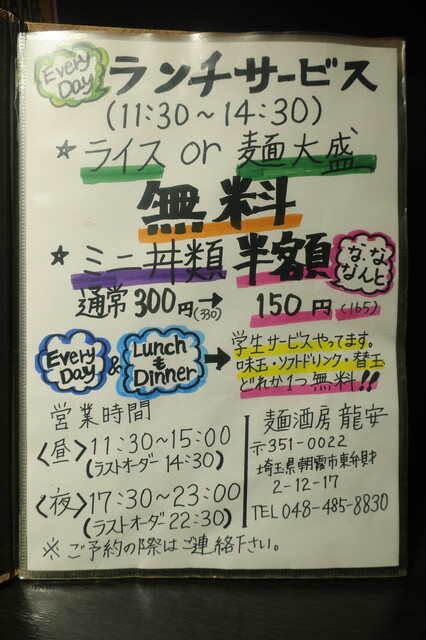 EVERY DAY ランチサービス
(11:30～14:30)
★ライス or 麺大盛
無料
★ミニ丼類 半額 な、な なんと
通常300円(330)→150円(165)
EVERY DAY & Lunch も Dinner →
学生サービスやってます。
味玉・ソフトドリンク・替玉
どれか1つ無料!!
営業時間
〈昼〉11:30～15:00
(ラストオーダー 14:30)
〈夜〉17:30～23:00
(ラストオーダー 22:30)
※ご予約の際はご連絡下さい。
麺酒房 龍安
〒351-0022
埼玉県朝霞市東弁財
2-12-17
TEL 048-485-8830